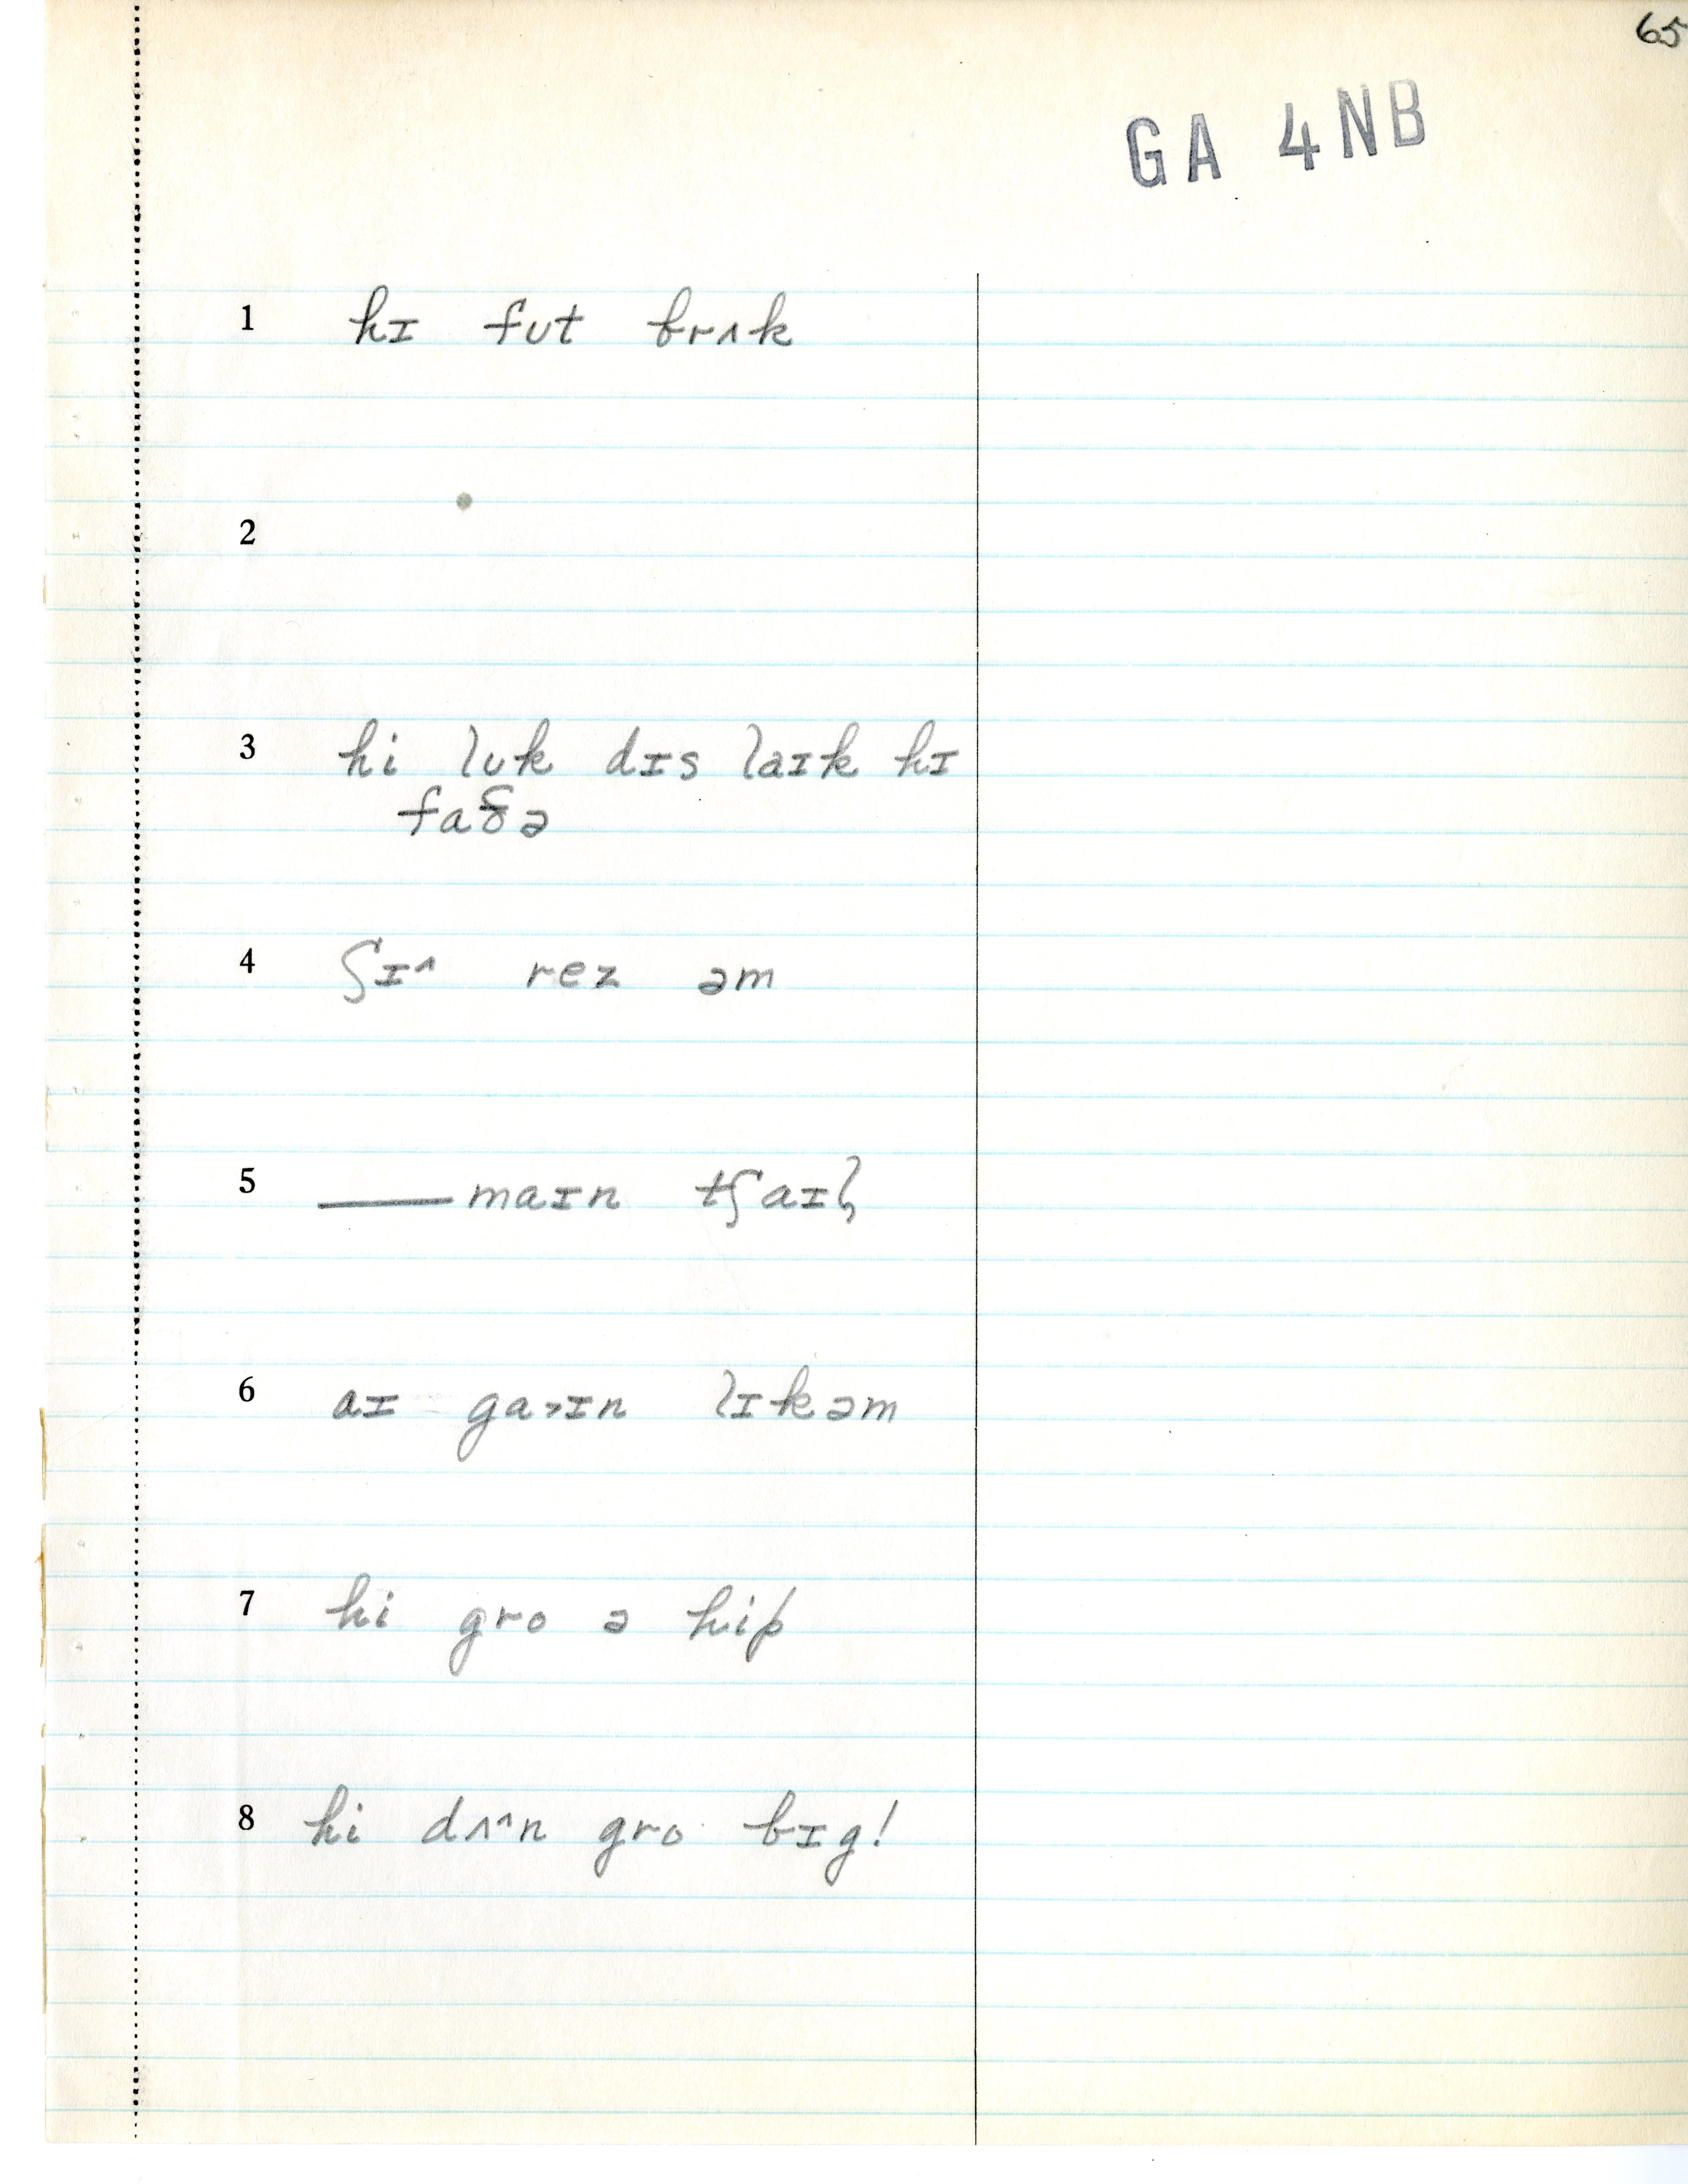 65
GA 4NB
1 hɪ fʊt brʌk
2
3 hi lʊk dɪs laɪk hɪ
faðə
4 ʃɪ^ rez əm
5 —— maɪn tʃaɪl
6 aɪ ga>ɪn lɪkəm
7 hi gro ə hip
8 hi dʌ^^n gro bɪg!